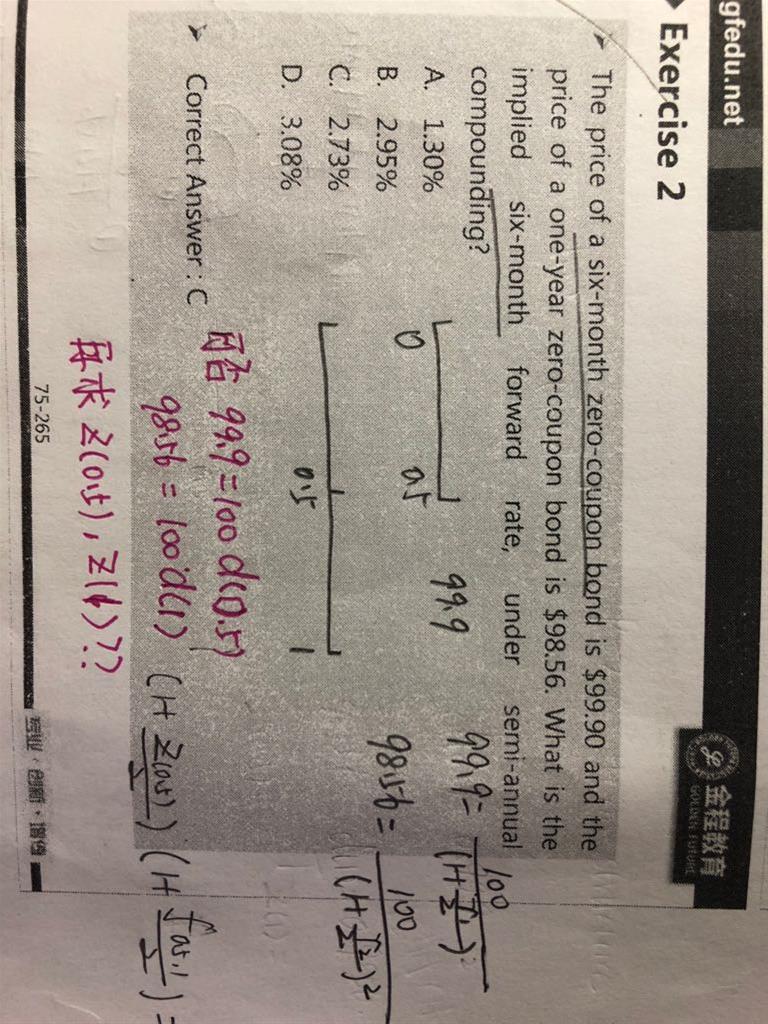 gfedu.net
金程教育
GOLDEN FUTURE
Exercise 2
The price of a six-month zero-coupon bond is $99.90 and the
price of a one-year zero-coupon bond is $98.56. What is the
implied six-month forward rate, under semi-annual
compounding?
A. 1.30%
B. 2.95%
C. 2.73%
D. 3.08%
0 0.5 99.9
99.9 = 100 / (1+ r1/2)
0.5 1
98.56 = 100 / (1+ r2/2)²
Correct Answer : C
可否 99.9 = 100 d(0.5)
98.56 = 100 d(1)
(1+ Z(0.5)/2) (1+ f0.5,1/2) =
再求 Z(0.5), Z(1)??
75-265
专业·创新·增值